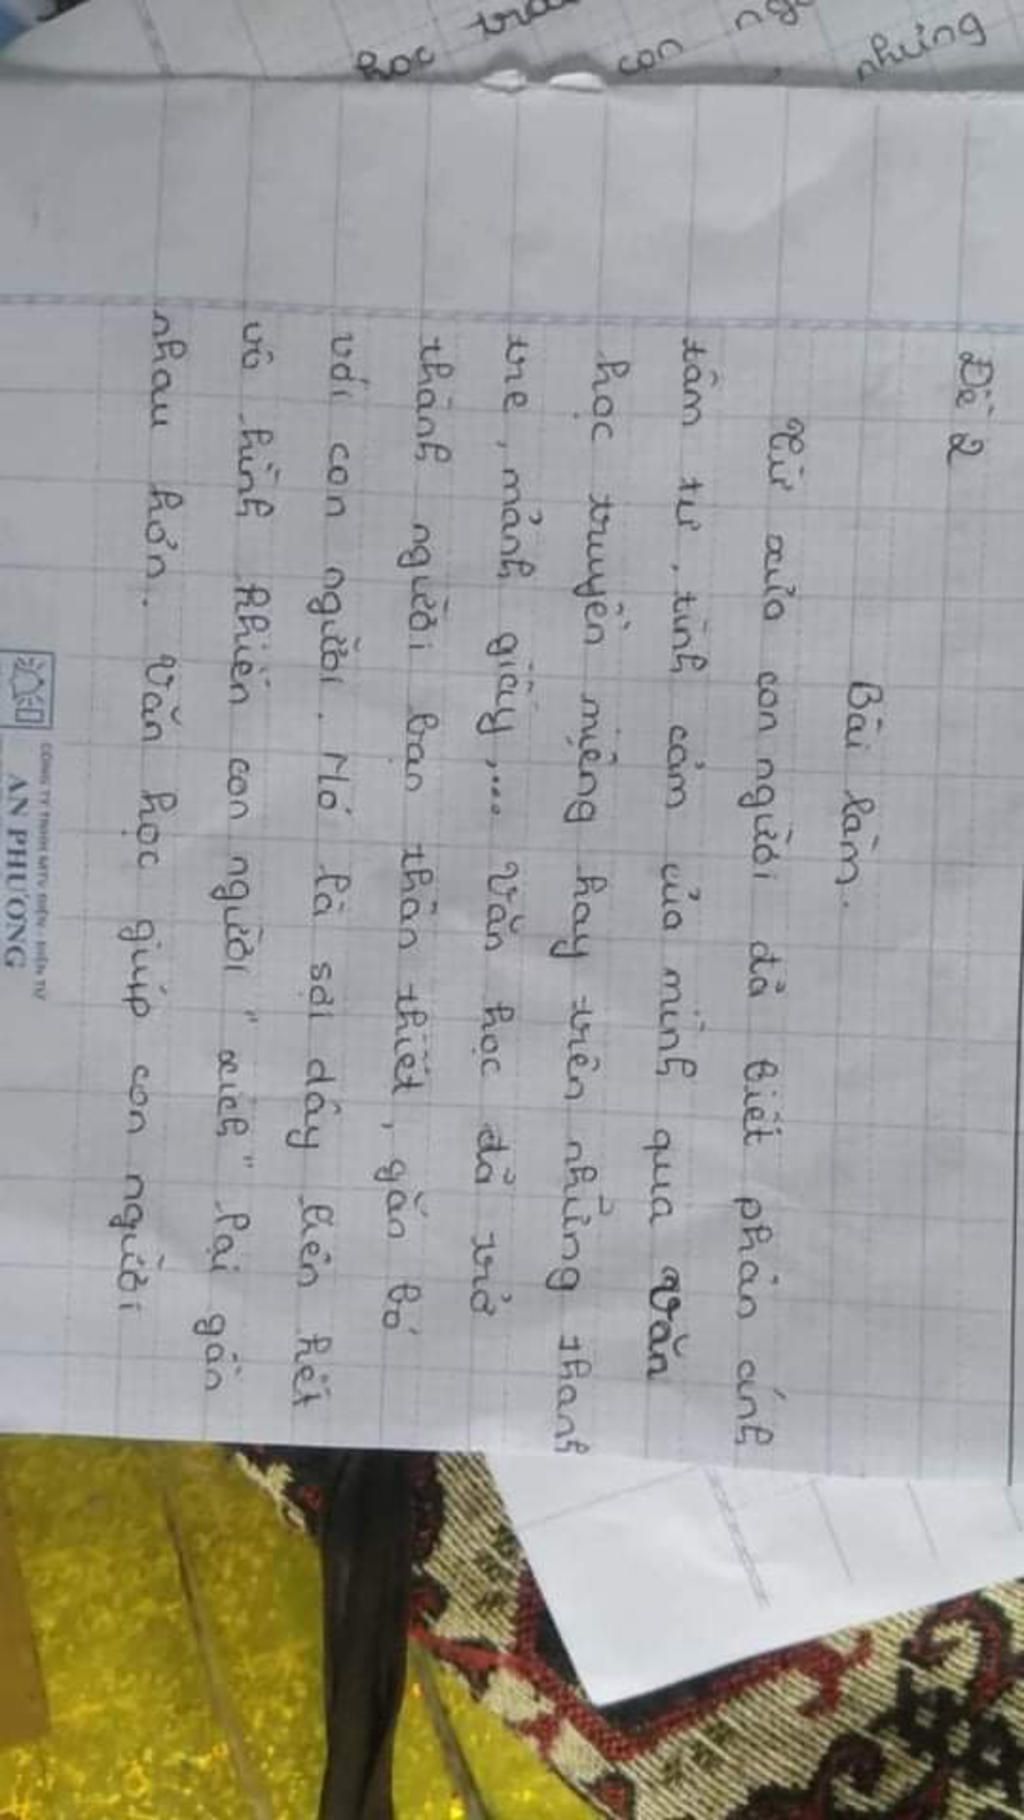 những
Đề 2
Bài làm.
Từ xưa con người đã biết phản ánh
tâm tư, tình cảm của mình qua văn
học truyền miệng hay trên những thanh
tre, mảnh giấy,... Văn học đã trở
thành người bạn thân thiết, gắn bó
với con người. Nó là sợi dây liên kết
vô hình khiến con người "xích" lại gần
nhau hơn. Văn học giúp con người
CÔNG TY TNHH MTV ĐIỆN - ĐIỆN TỬ
AN PHƯƠNG